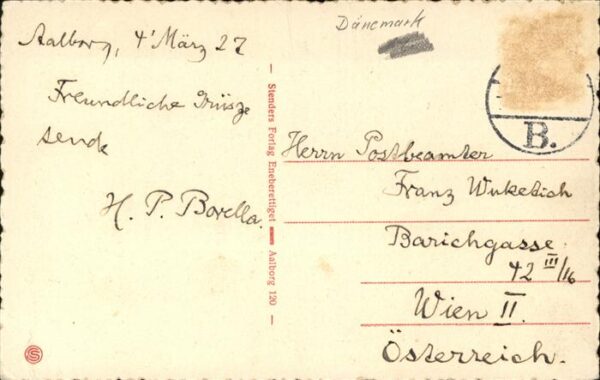 Dänemark
Aalborg, 4' März 27
Freundliche Grüsze
sende
H. P. Borella.
Stenders Forlag Eneberettiget Aalborg 120
B.
Herrn Postbeamter
Franz Wukelich
Barichgasse
42 III/16
Wien II.
Österreich.
S